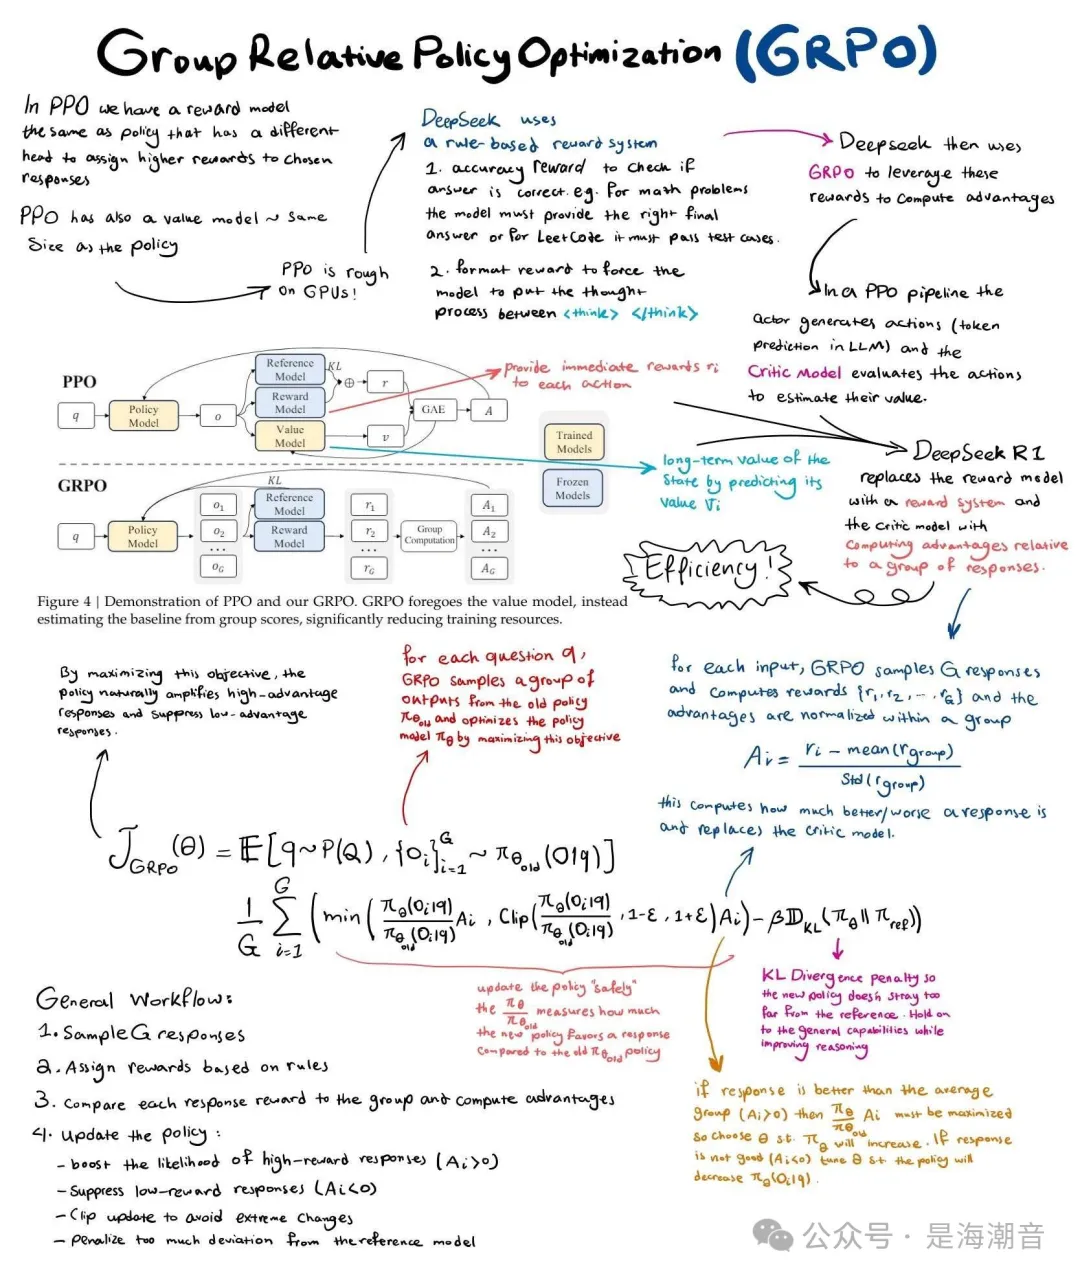 Group Relative Policy Optimization (GRPO)
In PPO we have a reward model
the same as policy that has a different
head to assign higher rewards to chosen
responses
PPO has also a value model ~ same
Size as the policy
PPO is rough
on GPUs!
DeepSeek uses
a rule-based reward system
1. accuracy reward to check if
answer is correct. e.g. for math problems
the model must provide the right final
answer or for LeetCode it must pass test cases.
2. format reward to force the
model to put the thought
process between <think> </think>
Deepseek then uses
GRPO to leverage these
rewards to compute advantages
In a PPO pipeline the
actor generates actions (token
prediction in LLM) and the
Critic Model evaluates the actions
to estimate their value.
PPO
q
Policy
Model
o
Reference
Model
Reward
Model
Value
Model
KL
⊕
r
v
GAE
A
provide immediate rewards ri
to each action
Trained
Models
Frozen
Models
long-term value of the
State by predicting its
value Vi
DeepSeek R1
replaces the reward model
with a reward system and
the critic model with
Computing advantages relative
to a group of responses.
Efficiency!
GRPO
q
Policy
Model
KL
o1
o2
...
oG
Reference
Model
Reward
Model
r1
r2
...
rG
Group
Computation
A1
A2
...
AG
Figure 4 | Demonstration of PPO and our GRPO. GRPO foregoes the value model, instead
estimating the baseline from group scores, significantly reducing training resources.
By maximizing this objective, the
policy naturally amplifies high-advantage
responses and suppress low-advantage
responses.
for each question q,
GRPO samples a group of
outputs from the old policy
πθold and optimizes the policy
model πθ by maximizing this objective
for each input, GRPO samples G responses
and computes rewards {r1, r2, ... , rG} and the
advantages are normalized within a group
Ai = ri - mean(rgroup) / Std(rgroup)
this computes how much better/worse a response is
and replaces the critic model.
JGRPO(θ) = E[q~P(Q), {Oi}G i=1 ~ πθold(O|q)]
1/G Σ G i=1 (min(πθ(Oi|q)/πθold(Oi|q) Ai, Clip(πθ(Oi|q)/πθold(Oi|q), 1-ε, 1+ε)Ai) - βDKL(πθ || πref))
update the policy "safely"
the πθ/πθold measures how much
the new policy favors a response
compared to the old πθold policy
KL Divergence penalty so
the new policy doesn't stray too
far from the reference. Hold on
to the general capabilities while
improving reasoning
if response is better than the average
group (Ai>0) then πθ/πθold Ai must be maximized
so choose θ s.t. πθ will increase. If response
is not good (Ai<0) tune θ s.t. the policy will
decrease πθ(Oi|q).
General Workflow:
1. Sample G responses
2. Assign rewards based on rules
3. Compare each response reward to the group and compute advantages
4. Update the policy:
- boost the likelihood of high-reward responses (Ai>0)
- Suppress low-reward responses (Ai<0)
- Clip update to avoid extreme changes
- Penalize too much deviation from the reference model
公众号 · 是海潮音